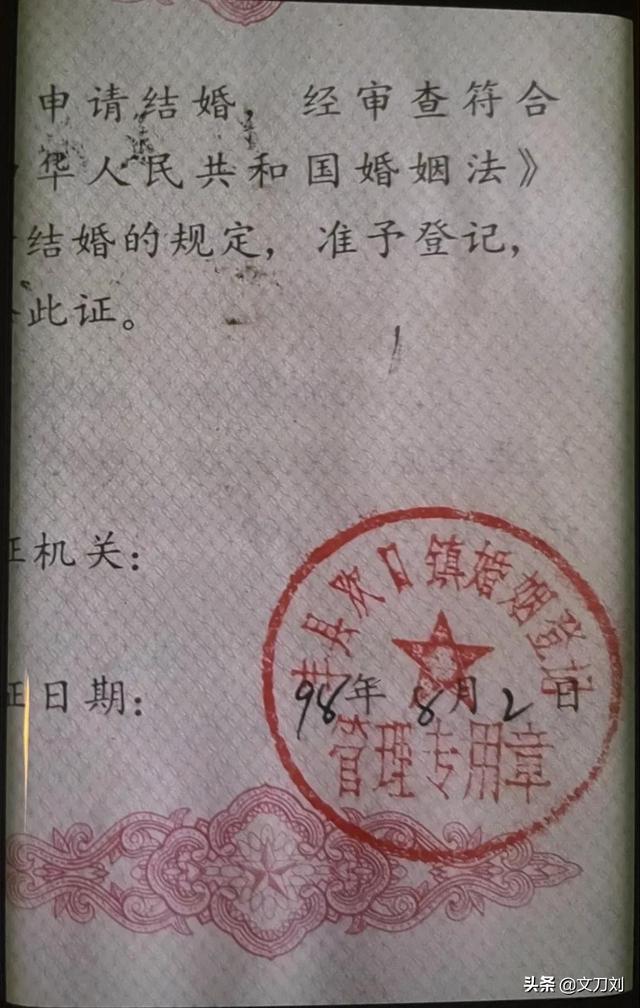 申请结婚，经审查符合
华人民共和国婚姻法》
结婚的规定，准予登记，
此证。
证机关：
证日期：
98年8月2日
丰县欢口镇婚姻登记
管理专用章
头条 @文刀刘